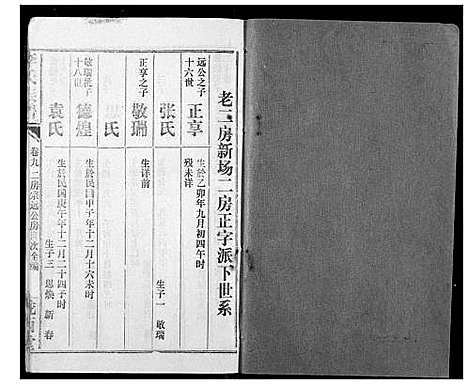 老三房新场二房正字派下世系
远公之子
十六世
正享
生於乙卯年九月初四午时
殁未详
张氏
生子一 敬瑞
正享之子
敬瑞
生详前
氏
敬瑞抚子
十八世
德煌
生於民国甲子年十二月十六未时
袁氏
生於民国庚午年十二月二十四子时
生子三 思焕 新春
卷九 二房宗远公房